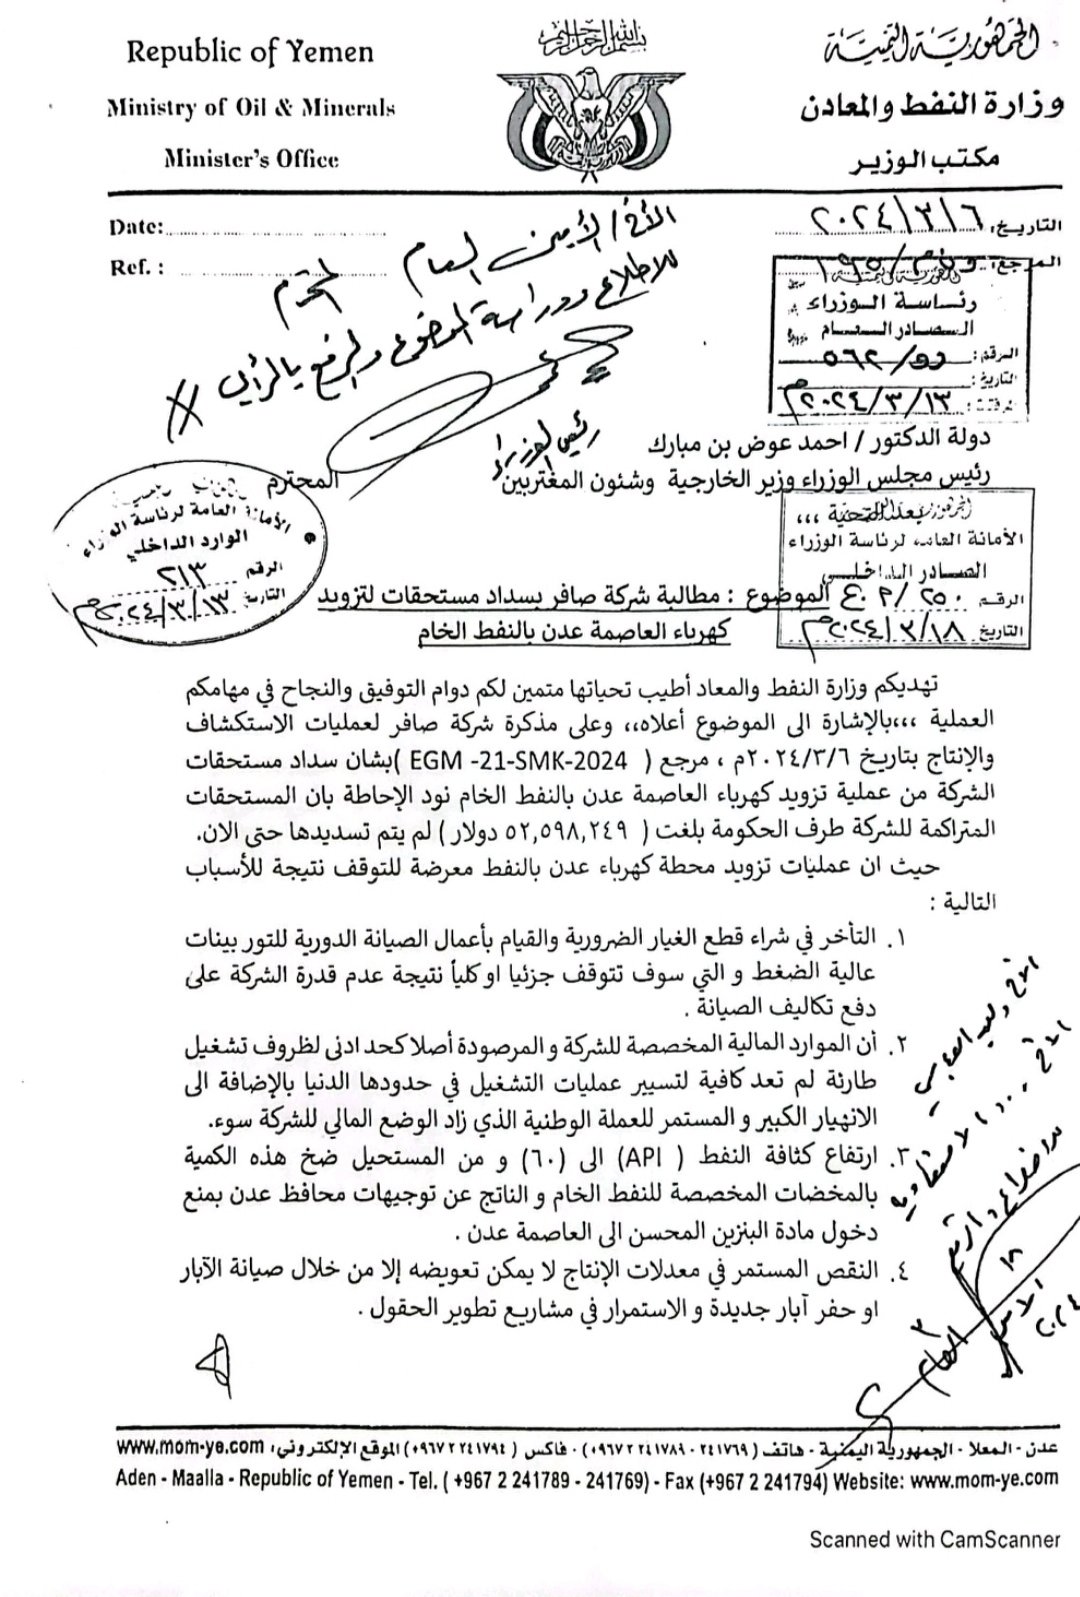 بسم الله الرحمن الرحيم
Republic of Yemen
Ministry of Oil & Minerals
Minister's Office
الجمهورية اليمنية
وزارة النفط والمعادن
مكتب الوزير
Date:
Ref. :
التاريخ: ٢٠٢٤/٣/٦
المرجع: ون م/١٩٥
الأخ/ الأمين العام
المحترم
للاطلاع ودراسة الموضوع والرفع بالرأي
رئيس الوزراء
رئاسة الوزراء
الصادر العام
الرقم: رو/٥٦٢
التاريخ: ٢٠٢٤/٣/١٣م
دولة الدكتور / احمد عوض بن مبارك
رئيس مجلس الوزراء وزير الخارجية وشئون المغتربين المحترم
بعد التحية ,,,
الأمانة العامة لرئاسة الوزراء
الوارد الداخلي
الرقم ٢١٣
التاريخ ٢٠٢٤/٣/١٣م
الأمانة العامة لرئاسة الوزراء
الصادر الداخلي
الرقم ٢٥٠ /
التاريخ ٢٠٢٤/٣/١٨م
الموضوع : مطالبة شركة صافر بسداد مستحقات لتزويد
كهرباء العاصمة عدن بالنفط الخام
تهديكم وزارة النفط والمعاد أطيب تحياتها متمين لكم دوام التوفيق والنجاح في مهامكم
العملية ،،،بالإشارة الى الموضوع أعلاه،، وعلى مذكرة شركة صافر لعمليات الاستكشاف
والإنتاج بتاريخ ٢٠٢٤/٣/٦م ، مرجع ( EGM -21-SMK-2024 )بشان سداد مستحقات
الشركة من عملية تزويد كهرباء العاصمة عدن بالنفط الخام نود الإحاطة بان المستحقات
المتراكمة للشركة طرف الحكومة بلغت ( ٥٢,٥٩٨,٢٤٩ دولار ) لم يتم تسديدها حتى الان.
حيث ان عمليات تزويد محطة كهرباء عدن بالنفط معرضة للتوقف نتيجة للأسباب
التالية :
١. التأخر في شراء قطع الغيار الضرورية والقيام بأعمال الصيانة الدورية للتور بينات
عالية الضغط و التي سوف تتوقف جزئيا او كلياً نتيجة عدم قدرة الشركة على
دفع تكاليف الصيانة .
٢. أن الموارد المالية المخصصة للشركة و المرصودة أصلا كحد ادنى لظروف تشغيل
طارئة لم تعد كافية لتسيير عمليات التشغيل في حدودها الدنيا بالإضافة الى
الانهيار الكبير و المستمر للعملة الوطنية الذي زاد الوضع المالي للشركة سوء.
٣. ارتفاع كثافة النفط ( API) الى (٦٠) و من المستحيل ضخ هذه الكمية
بالمخضات المخصصة للنفط الخام و الناتج عن توجيهات محافظ عدن بمنع
دخول مادة البنزين المحسن الى العاصمة عدن .
٤. النقص المستمر في معدلات الإنتاج لا يمكن تعويضه إلا من خلال صيانة الآبار
او حفر آبار جديدة و الاستمرار في مشاريع تطوير الحقول .
عدن - المعلا - الجمهورية اليمنية - هاتف ( ٢٤١٧٦٩ - ٢٤١٧٨٩ ٢ ٩٦٧+) - فاكس ( ٢٤١٧٩٤ ٢ ٩٦٧+) الموقع الإلكتروني: www.mom-ye.com
Aden - Maalla - Republic of Yemen - Tel. ( +967 2 241789 - 241769) - Fax (+967 2 241794) Website: www.mom-ye.com
Scanned with CamScanner